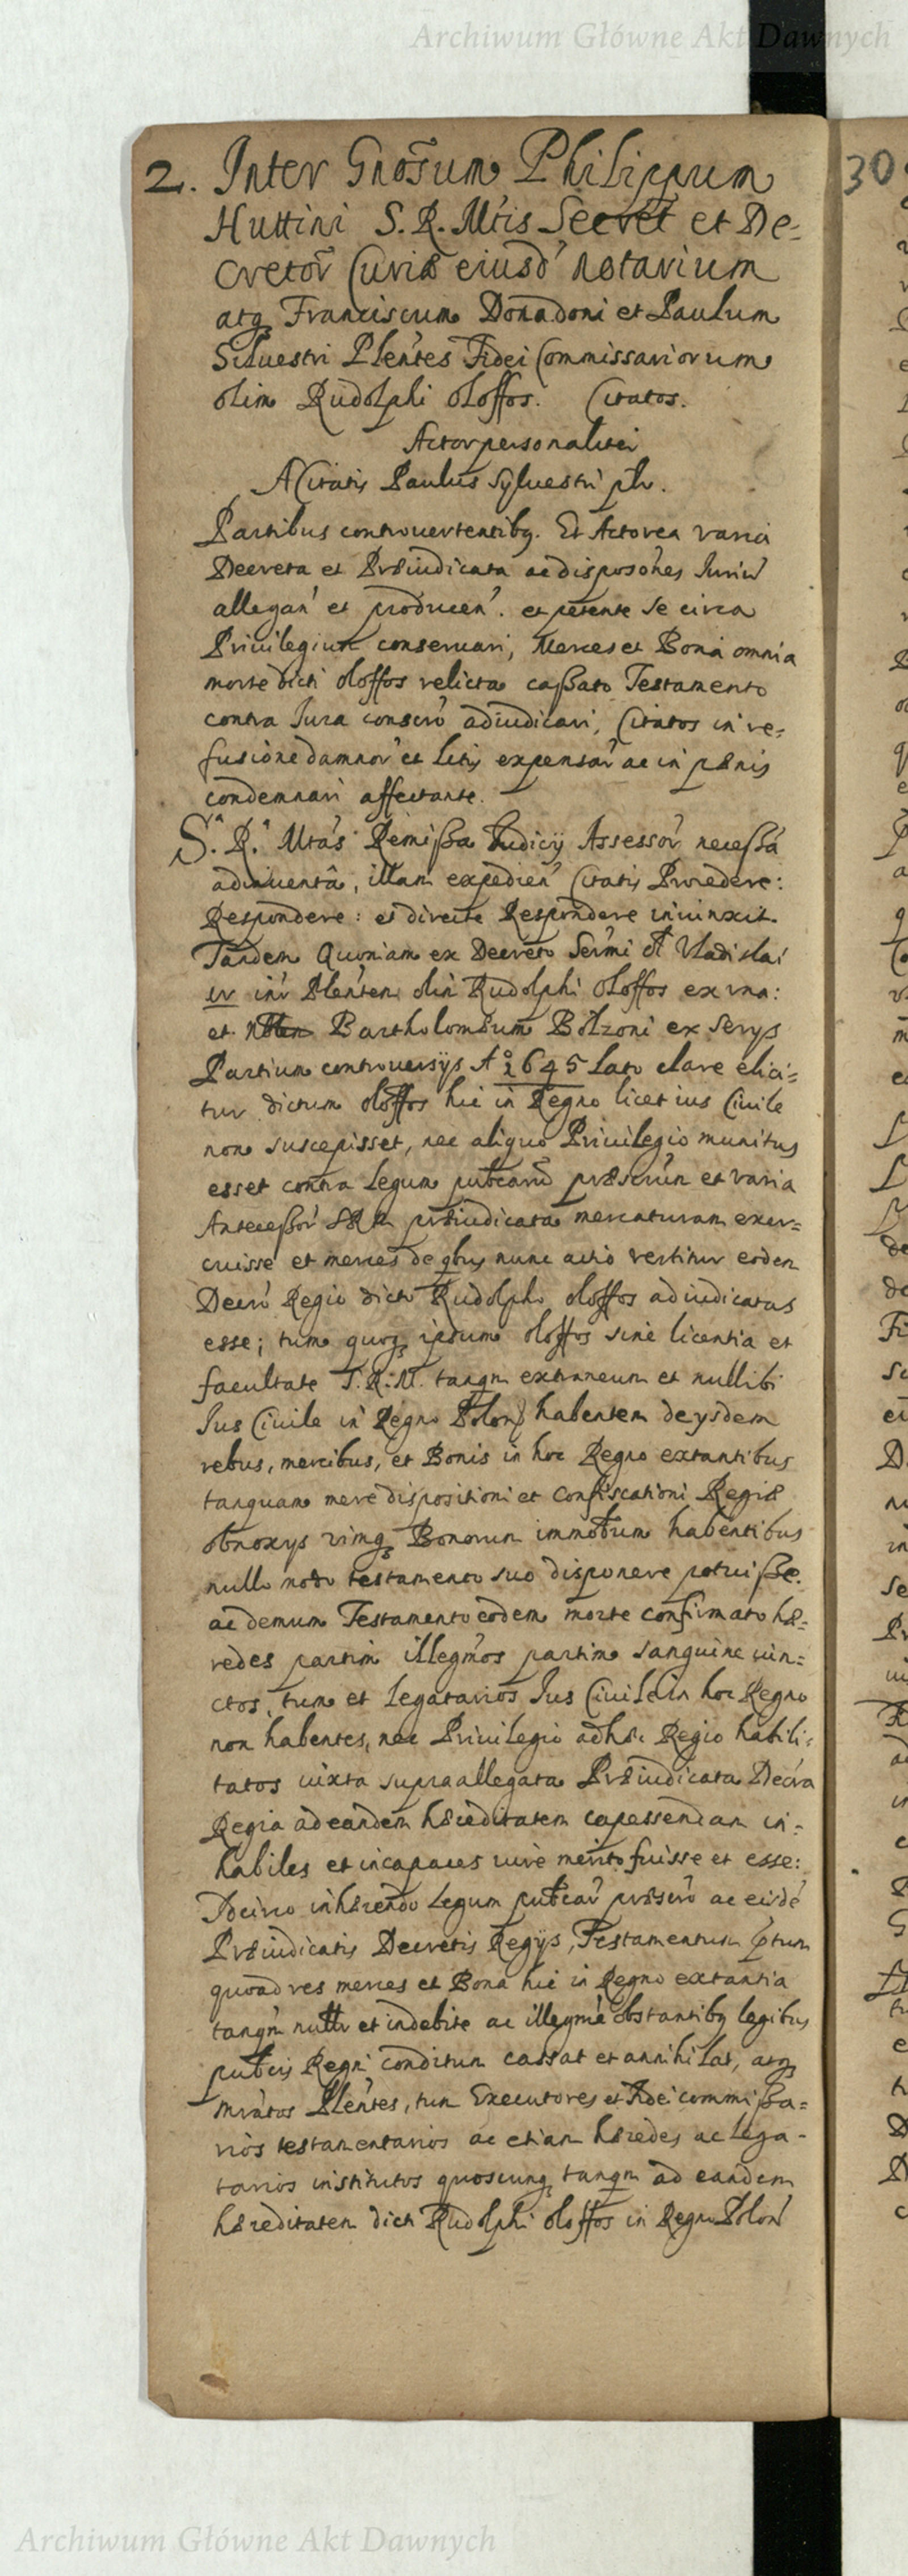 Archiwum Główne Akt Dawnych
30
2. Inter Gnosum Philippum
Huttini S. R. Mtis Secret et De-
cretor Curiæ eiusd notarium
atq Franciscum Donadoni et Paulum
Siluestri Plentes Fidei Commissariorum
olim Rudolphi Oloffos. Citatos.
Actor personaliter
A Citatis Paulus Syluestri plr.
Partibus controuertentibq. Et Actorea varia
Decreta et Præiudicata ac disposones Iuriu
allegan et producen. et petente se circa
Priuilegium conseruari, Merces et Bona omnia
morte dicti Oloffos relicta cassato Testamento
contra Iura conscro adiudicari, Citatos in re-
fusione damnor et Litis expensar ac in pænis
condemnari affectante.
S.a R.a Mtas Remissa Iudicij Assessor necessa
adinuenta, illam expedien Citatis Procedere:
Respondere: et directe Respondere iniunxit.
Tandem Quoniam ex Decreto Sermi ol Vladislai
IV inr Plenten olim Rudolphi Oloffos ex vna:
et Bartholomæum Bolzoni ex serys
Partium controuersijs Ao 1645 Lato clare elici-
tur dictum Oloffos hic in Regno licet ius Ciuile
non suscepisset, nec aliquo Priuilegio munitus
esset contra Legum publicaru præscrun et varia
Antecessor præiudicata mercaturam exer-
cuisse et merces de qbus nunc actio vertitur eodem
Decro Regio dicto Rudolpho Oloffos adiudicatas
esse; tum quoq ipsum Oloffos sine licentia et
facultate S. R. M. tanqm extraneum et nullibi
Ius Ciuile in Regno Polon habentem de ysdem
rebus, mercibus, et Bonis in hoc Regno extantibus
tanquam mere dispositioni et Confiscationi Regiæ
obnoxys vimq Bonorum immobum habentibus
nullo modo testamento suo disponere potuisse.
ac demum Testamento eodem morte confirmato hæ-
redes partim illegmos partim sanguine iun-
ctos, tum et Legatarios Ius Ciuile in hoc Regno
non habentes, nec Priuilegio adhoc Regio habili-
tatos iuxta supraallegata Præiudicata Decra
Regia ad eandem hæreditatem capessendam in-
habiles et incapaces iure merito fuisse et esse:
Idcirco inhærendo Legum pubcar præscro ac eisde
Præiudicatis Decretis Regijs, Testamentum
quoad res merces et Bona hic in Regno extantia
tanqm nullr et indebite ac illegme obstantibq legibus
pubcis Regni conditum cassat et annihilat, atq
mratos Plentes, tum Executores et Fidei commissa-
rios testamentarios ac etiam hæredes ac Lega-
tarios institutos quoscunq tanqm ad eandem
hæreditatem dicti Rudolphi Oloffos in Regno Polon
Archiwum Główne Akt Dawnych